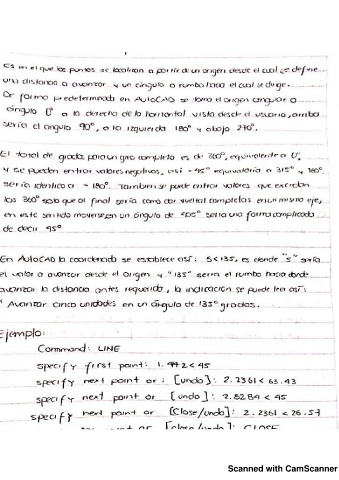 Es en el que los puntos se localizan a partir de un origen desde el cual se define
una distancia a avanzar y un ángulo o rumbo hacia el cual se dirige.
De forma predeterminada en AutoCAD se toma el origen angular o
ángulo 0° a la derecha de la horizontal vista desde el usuario, arriba
sería el angulo 90°, a la izquierda 180° y abajo 270°.
El total de grados para un giro completo es de 360°, equivalente a 0°,
y se pueden entrar valores negativos, así -45° equivaldría a 315° y 180°
sería idéntico a -180°. Tambien se puede entrar valores que excedan
los 360° solo que al final sería como dar vueltas completas en un mismo eje,
en este sentido moverse en un ángulo de 405° sería una forma complicada
de decir 45°
En AutoCAD la coordenada se establece así: 5<135, es donde "5" sería
el valor a avanzar desde el origen y "135" sería el rumbo hacia donde
avanzar la distancia antes requerida, la indicación se puede leer así:
" Avanzar cinco unidades en un ángulo de 135° grados.
Ejemplo:
Command: LINE
specify first point: 1.4142 < 45
specify next point or : [undo]: 2.2361 < 63.43
specify next point or [undo]: 2.8284 < 45
specify next point or [Close/undo]: 2.2361 < 26.57
point or [close/undo]: CLOSE
Scanned with CamScanner